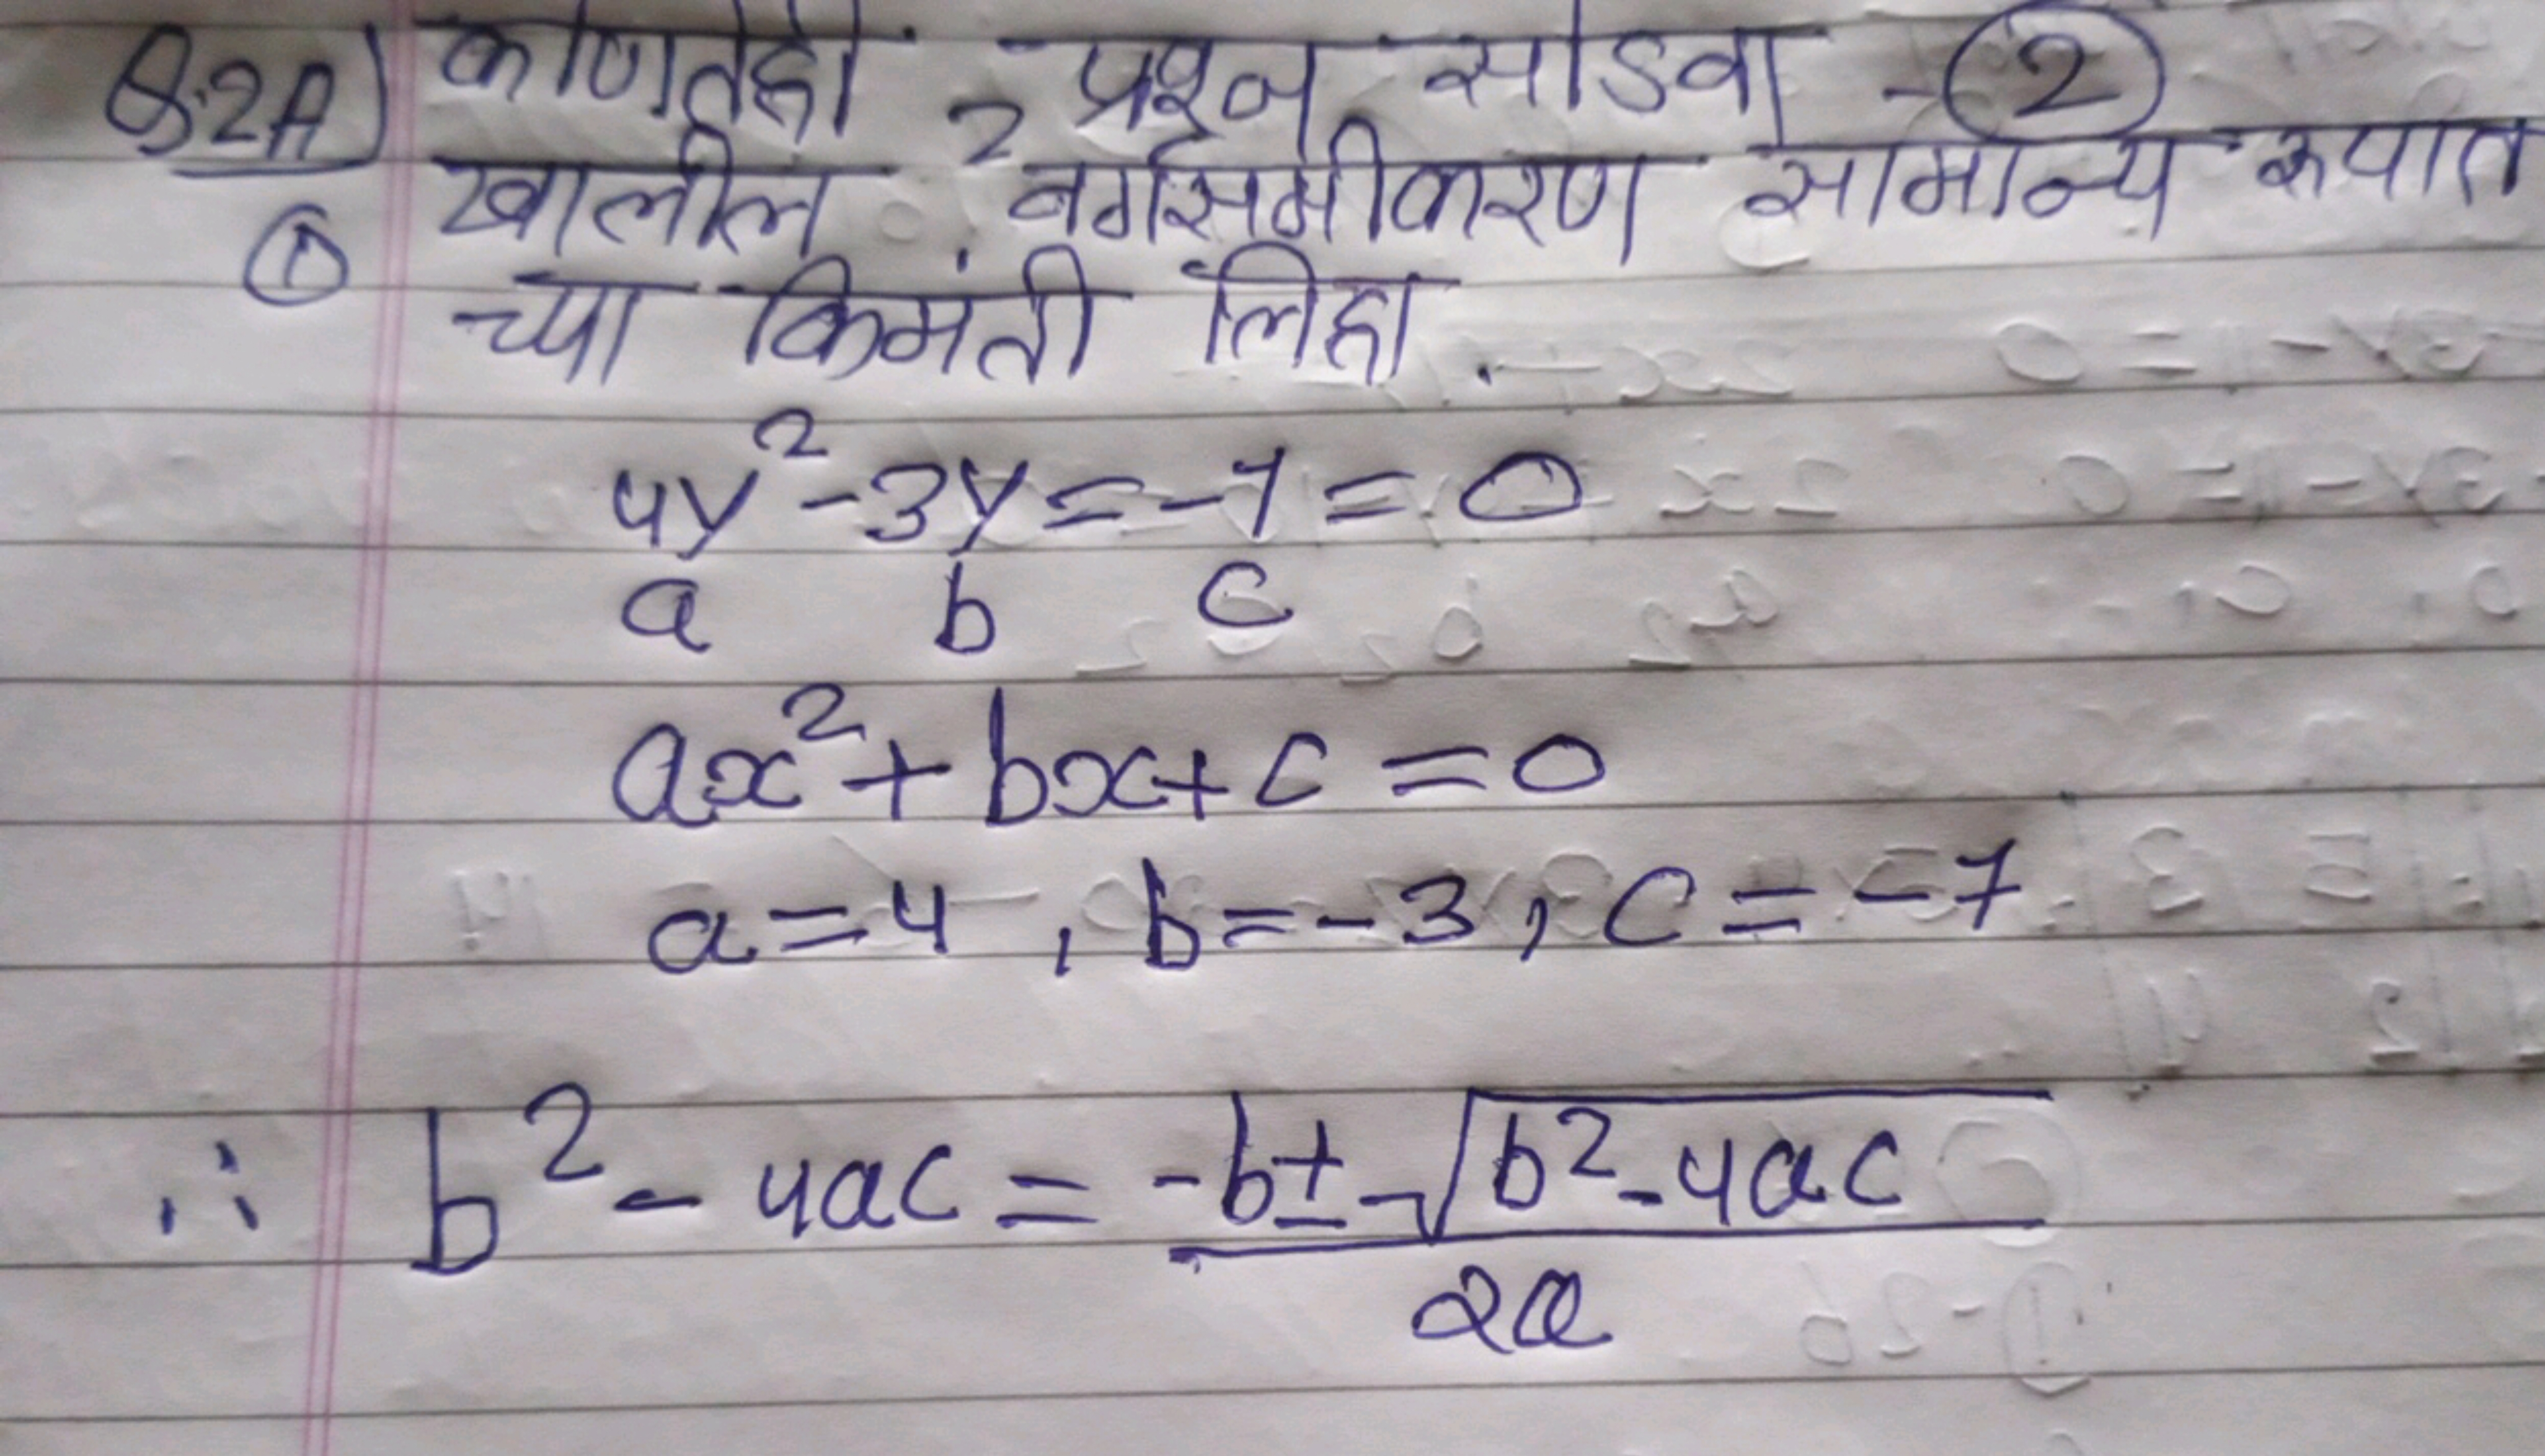 Q.2A) कोणतेही 2 प्रश्न सोडवा - 2
① खालील वर्गसमीकरण सामान्य रुपात
च्या किमंती लिहा.
4y² - 3y = -7 = 0
a b c
ax² + bx + c = 0
a = 4 , b = -3 , c = -7
∴ b² - 4ac = -b ± √b² - 4ac
2a